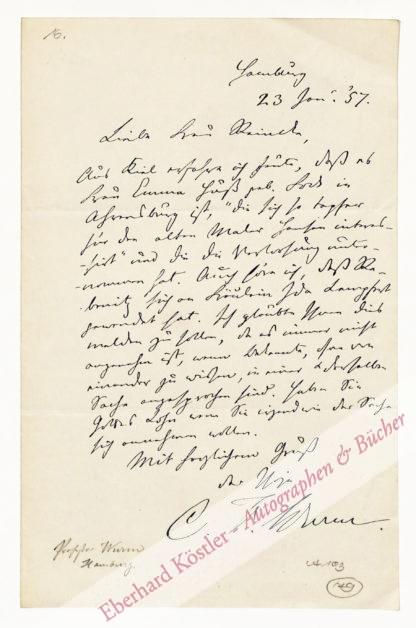 Hamburg
23 Jan. '57.
Liebe Frau Reincke,
Aus Kiel erfahre ich heute, daß es
Frau Emma Huß geb. Lock in
Ahrensburg ist, "die sich so tapfer
für den alten Maler Hansen interes-
sirt" und die die Verlosung unter-
nommen hat. Auch höre ich, daß
sich an Fräulein Ida
gewendet hat. Ich glaubte Ihnen dies
melden zu sollen, da es immer nicht
angenehm ist, wenn Bekannte, ohne von
einander zu wissen, in einer & derselben
Sache angesprochen sind. Haben Sie
Gottes Lohn wenn Sie irgendwie der Sache
sich annehmen wollen.
Mit herzlichem Gruß
der Ihrige
C. F. Wurm.
Professor Wurm
Hamburg.
Eberhard Köstler Autographen & Bücher